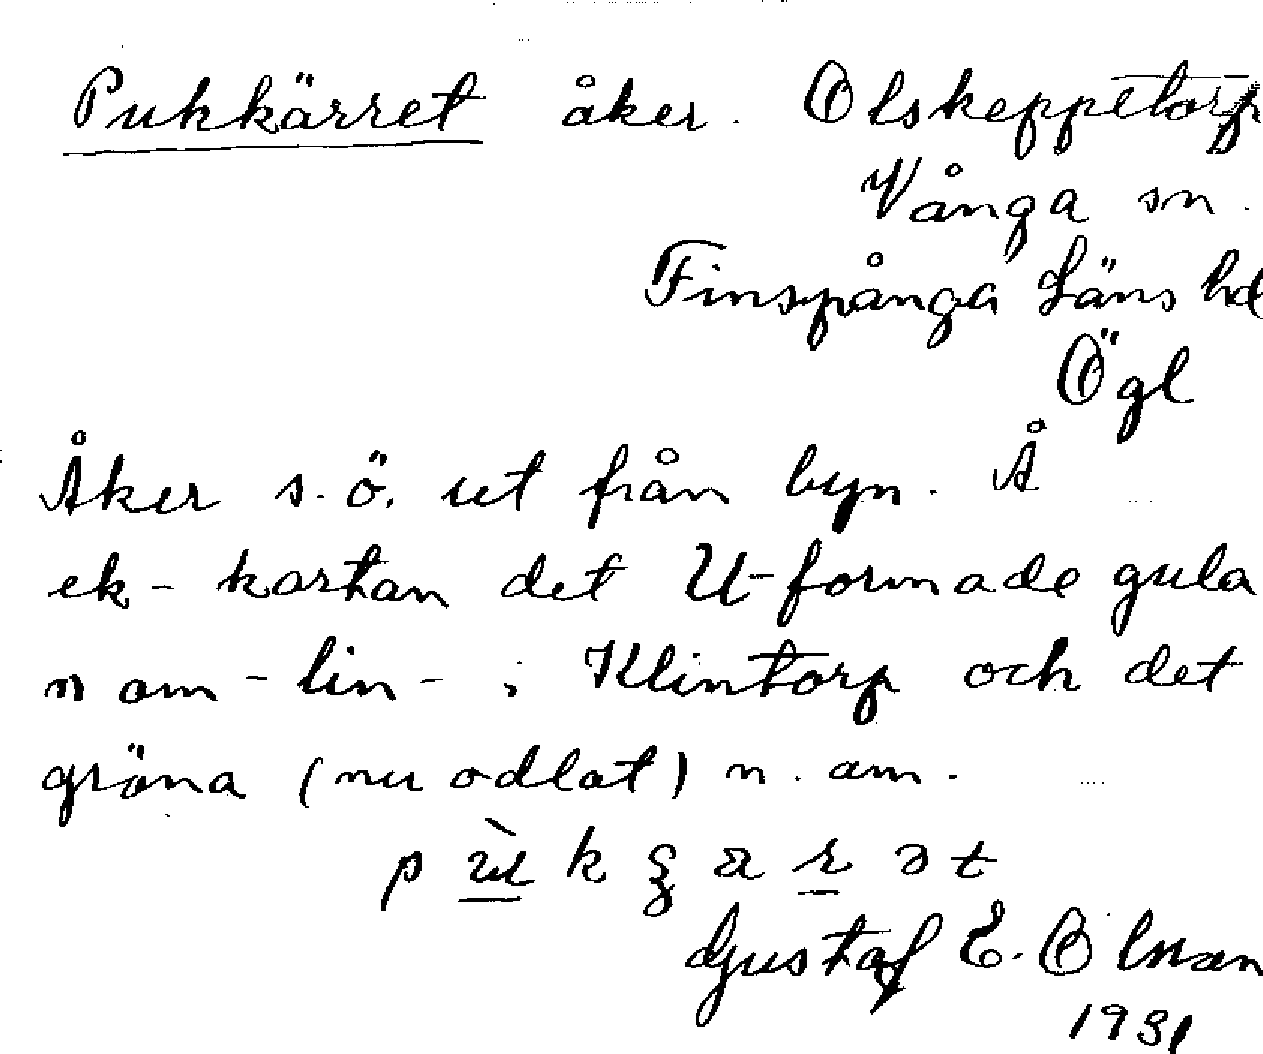 Pukkärret åker. Olskeppetorp
Vånga sn.
Finspånga Läns hd
Ögl
Åker s.ö. ut från byn. Å
ek-kartan det U-formade gula
n om - lin - i Klintorp och det
gröna (nu odlat) n. om.
Gustaf E. Olman
1931